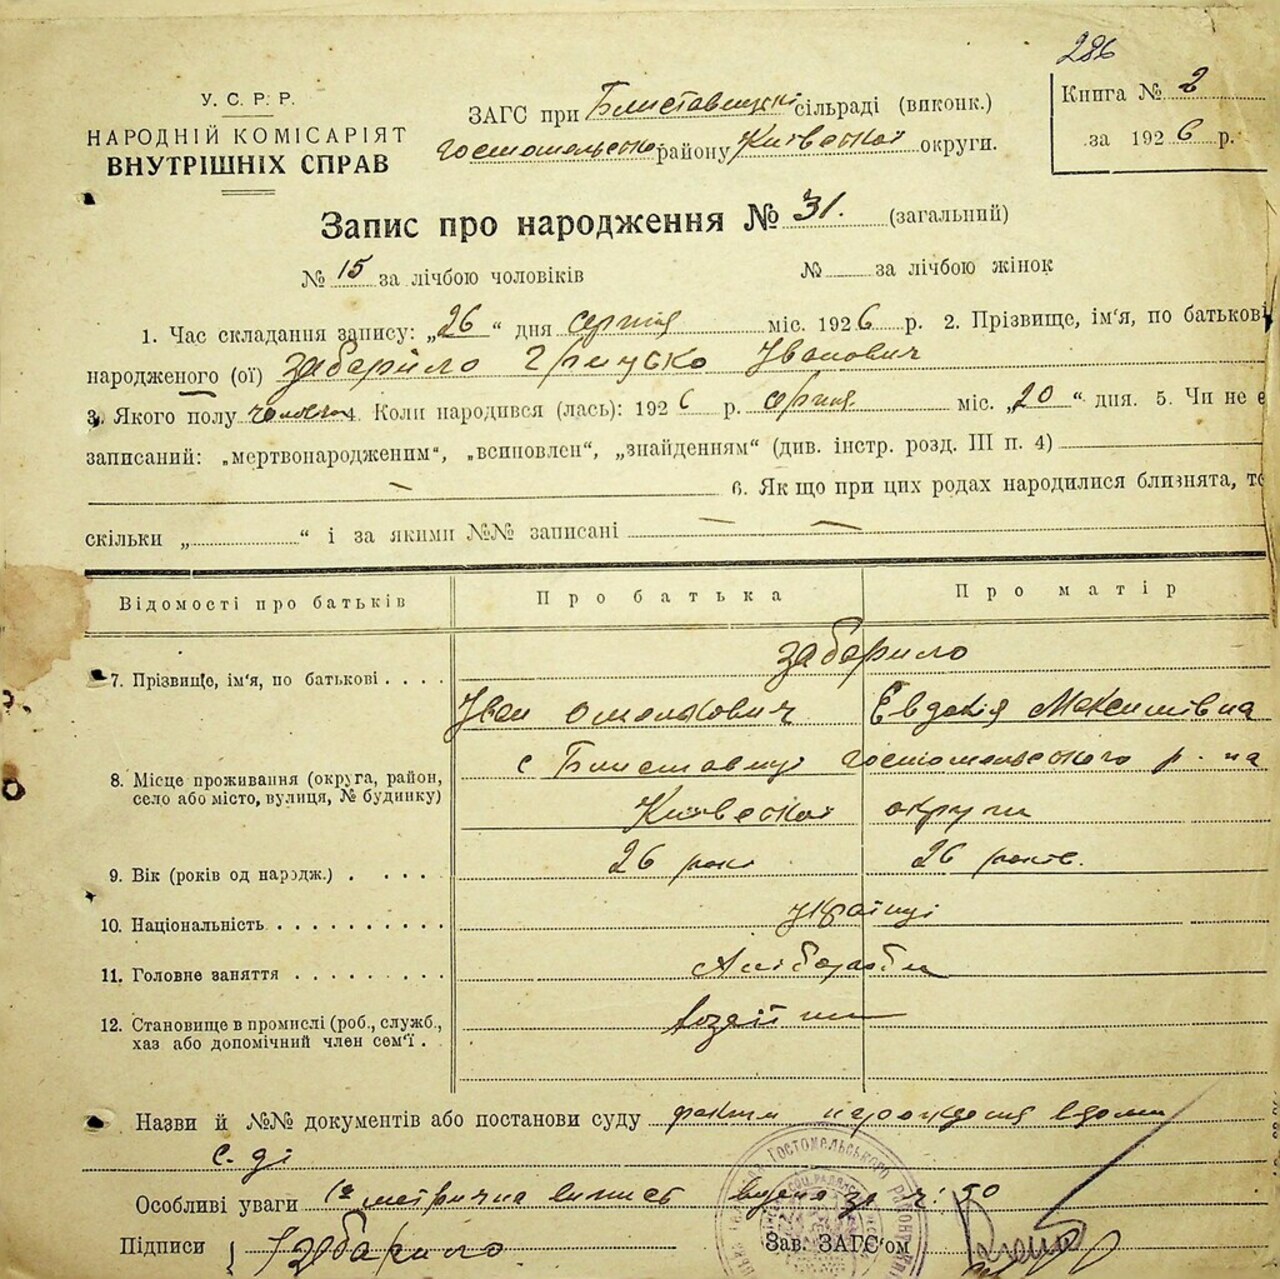 286
У. С. Р. Р.
НАРОДНІЙ КОМІСАРІЯТ
ВНУТРІШНІХ СПРАВ
ЗАГС при Блиставицькі сільраді (виконк.)
Гостомельсько району Київської округи.
Книга № 2
за 1926 р.
Запис про народження № 31. (загальний)
№ 15 за лічбою чоловіків № за лічбою жінок
1. Час складання запису: „26“ дня серпня міс. 1926 р. 2. Прізвище, ім‘я, по батькові
народженого (ої) Забарило Грицько Іванович
3. Якого полу 4. Коли народився (лась): 1926 р. серпня міс. „20“ дня. 5. Чи не є
записаний: „мертвонародженим“, „всиновлен“, „знайденням“ (див. інстр. розд. III п. 4)
6. Якщо при цих родах народилися близнята, то
скільки „ “ і за якими №№ записані
Відомості про батьків Про батька Про матір
Забарило
7. Прізвище, ім‘я, по батькові . . . .
Іван Омелькович Евдокія Максимівна
с Блиставиці Гостомельського р-на
8. Місце проживання (округа, район,
село або місто, вулиця, № будинку)
Київської округи
9. Вік (років од народж.) . . . . 26 рокі 26 років.
10. Національність . . . . . . . . . . українці
11. Головне заняття . . . . . . . . Хліборобы
12. Становище в промислі (роб., служб.,
хаз або допомічний член сем‘ї .
Назви й №№ документів або постанови суду
с. ді
Особливі уваги метрична випись видана за ч: 50
Підписи Забарило Зав. ЗАГС‘ом
Гостомельського